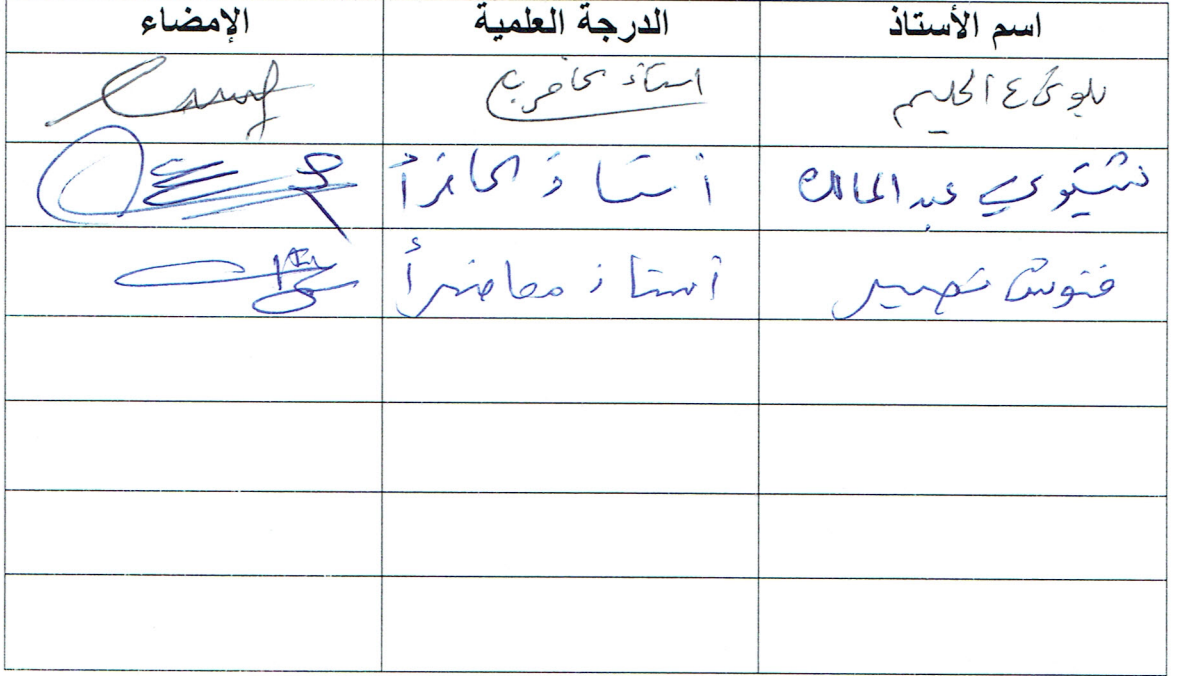 اسم الأستاذ الدرجة العلمية الإمضاء
ع الحليم أستاذ محاضر ب
عبد المالك أستاذ محاضر أ
فنوش نصير أستاذ محاضر أ